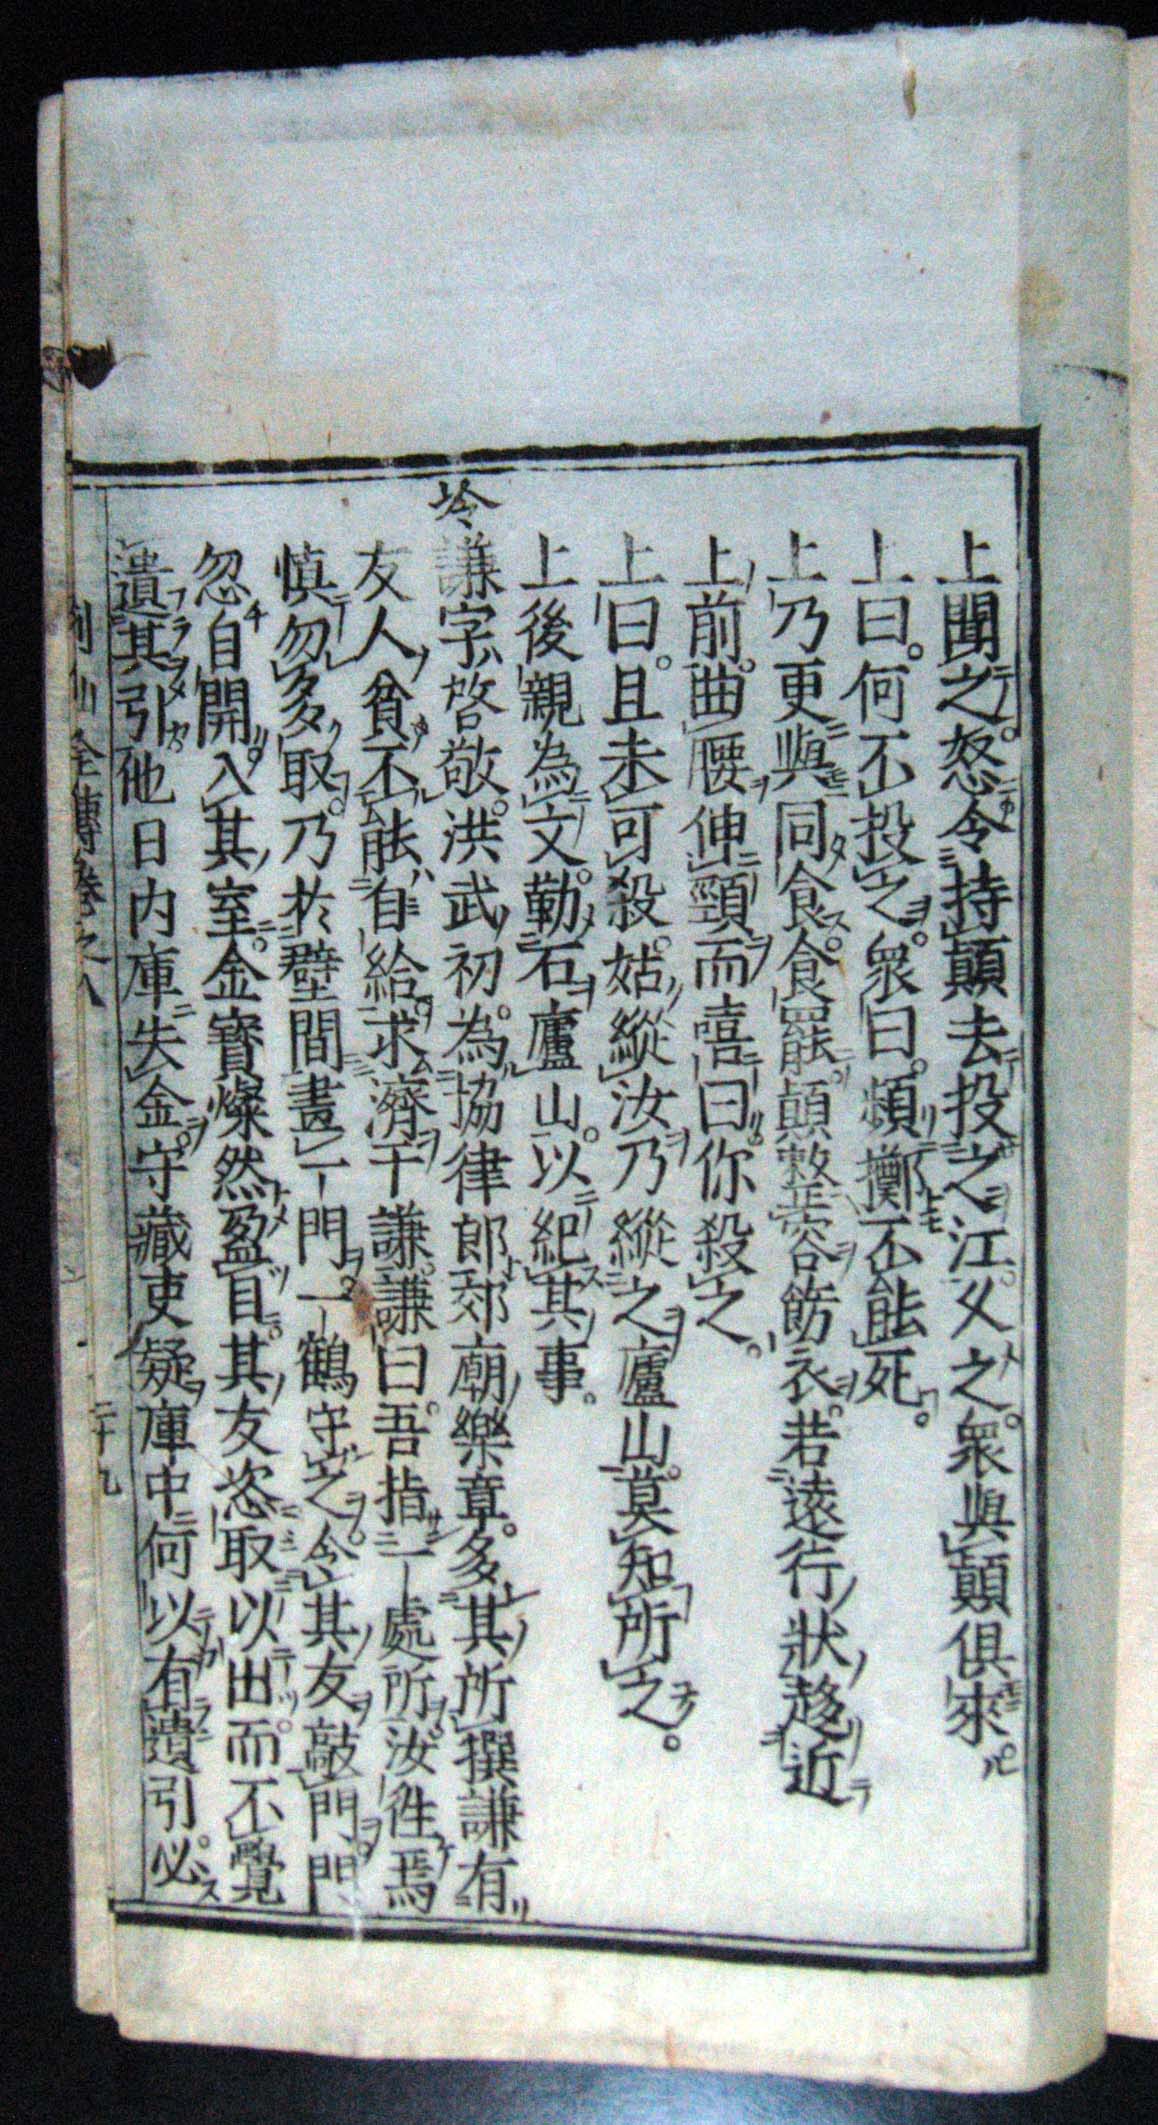 上聞之。怒令持顛去投之江。久之。衆與顛俱來。
上曰。何不投之。衆曰。頻擲不能死。
上乃更與同食。食罷顛整容飭衣。若遠行狀趍近
上前。曲腰伸頸而嘻曰你殺之。
上曰。且未可殺。姑縱汝乃縱之廬山。莫知所之。
上後親為文。勒石廬山。以紀其事。
冷謙字啓敬。洪武初。為協律郎郊廟樂章。多其所撰謙有
友人貧不能自給求濟于謙。謙曰。吾指一處所。汝徃焉
慎勿多取。乃於壁間畫一門。一鶴守之。令其友敲門。門
忽自開。入其室。金寶燦然盈目。其友恣取以出。而不覺
遺其引他日内庫失金。守藏吏疑庫中何以有遺引。必
列仙全傳卷之八 二十九